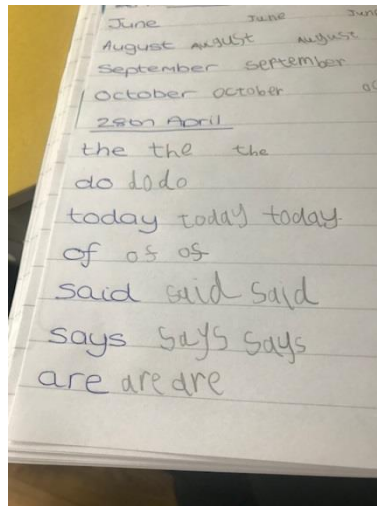 June June June
August August August
September September
October October
28th April
the the the
do do do
today today today
of of of
said said said
says says says
are are are